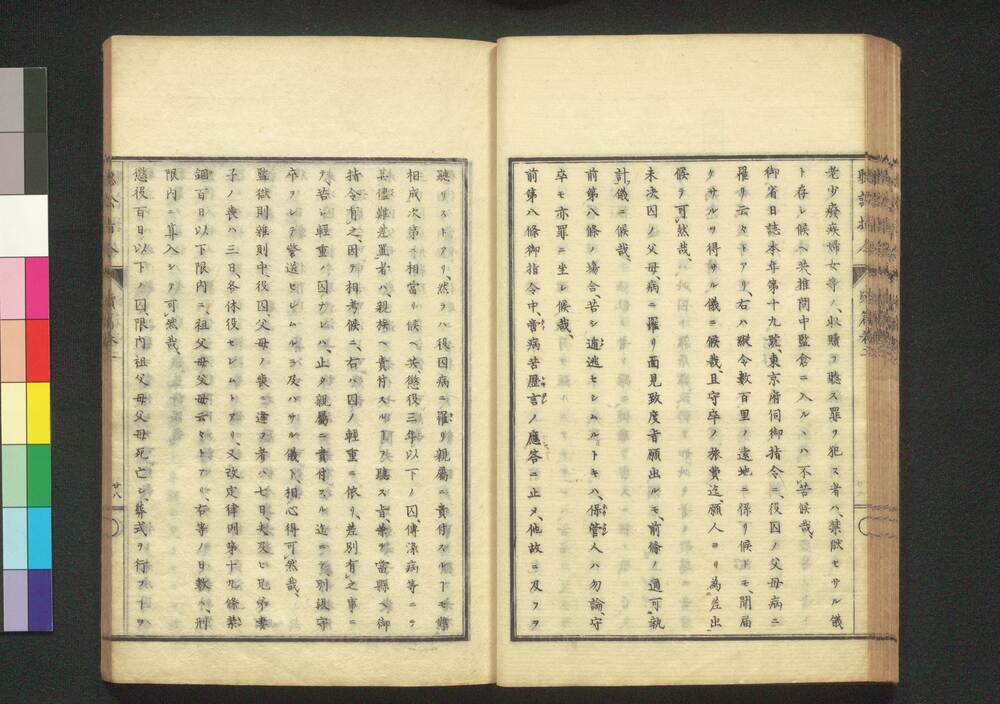 老少癈疾婦女等ノ收贖ヲ聽ス罪ヲ犯ス者ハ禁獄セサル儀
ト存シ候ヘ𪜈推問中監倉ニ入ルヽハ不苦候哉
御省日誌本年第十九號東京府伺御指令ニ役囚ノ父母病ニ
罹リ云々トアリ右ハ縱令數百里ノ遠地ニ係リ候𪜈聞届
クサルヲ得サル儀ニ候哉且守卒ノ旅費迄願人ヨリ爲差出
候ヲ可然哉
未決囚ノ父母病ニ罹リ面見致度旨願出ルモ前條ノ通可執
計儀ニ候哉
前第八條ノ塲合若シ逃逃セシムルトキハ保管人ハ勿論守
卒モ亦罪ニ坐シ候哉
前第八條御指令中當病苦
言ノ應答ニ止メ他故ニ及フヲ
聽リストアリ然ラハ役囚病ニ罹リ親屬ニ責付スル
相成次第ニ相當リ候ヘ𪜈懲役三年以下ノ囚傳染病等ニテ
其儘難差置者ハ親族ヘ責付スルヿヲ聽ス旨兼テ當縣ヘ御
指令有之因テ相考候ニ右ハ囚ノ輕重ニ依リ差別有之事ニ
テ若シ輕重ノ囚ナレハ止タ親屬ニ責付スル迄ニテ別
守
卒ヲシテ警
セシムルニ及ハサル儀ト相心得可然哉
監獄則雜則中役囚父母ノ喪ニ遭フ者ハ七日夫及ヒ兄弟妻
子ノ喪ハ三日各休役セシムトアリ又改定律例第十九條禁
錮百日以下限内ニ祖父母父母云々トアリ右等ノ日數ハ刑
限内ニ算入シテ可然哉
懲役百日以下ノ囚限内祖父母父母死亡シ葬式ヲ行フヿヲ
廿八